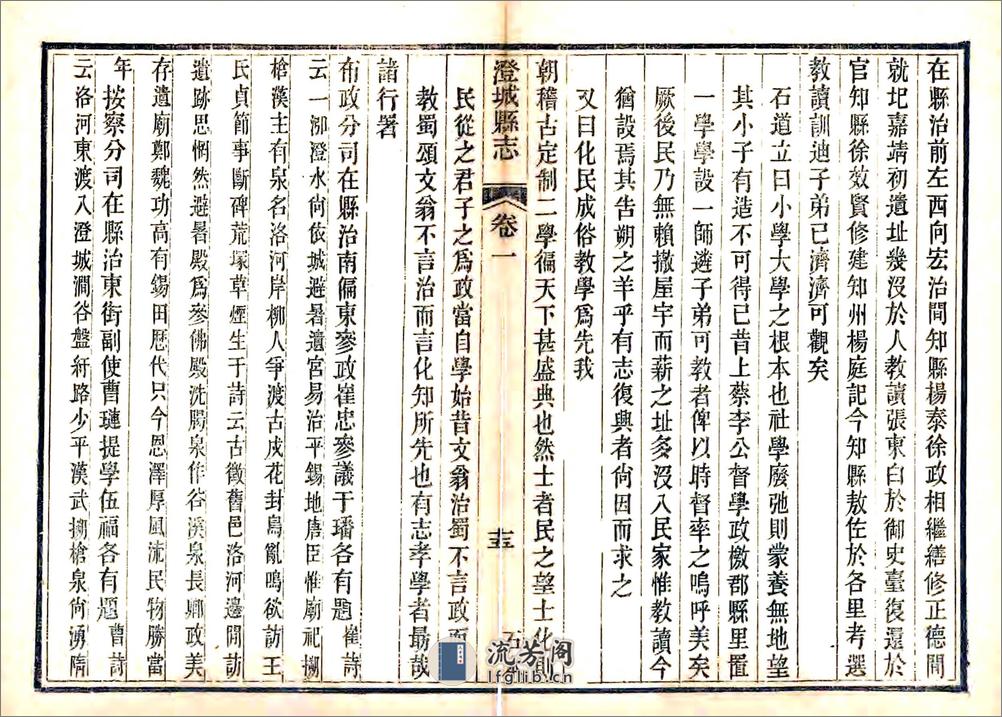 在縣治前左西向宏治間知縣楊泰徐政相繼繕修正德間
就圯嘉靖初遺址幾沒於人教讀張東白於御史臺復還於
官知縣徐效賢修建知州楊庭記今知縣敖佐於各里考選
教讀訓迪子弟已濟濟可觀矣
石道立曰小學大學之根本也社學廢弛則蒙養無地望
其小子有造不可得已昔上蔡李公督學政檄郡縣里置
一學學設一師遴子弟可教者俾以時督率之嗚呼美矣
厥後民乃無賴撤屋宇而薪之址多沒入民家惟教讀今
猶設焉其告朔之羊乎有志復興者尚因而求之
又曰化民成俗教學爲先我
朝稽古定制二學徧天下甚盛典也然士者民之望士化則
民從之君子之爲政當自學始昔文翁治蜀不言政而
教蜀頌文翁不言治而言化知所先也有志孝學者最哉
諸行署
布政分司在縣治南偏東參政崔忠參議于璠各有題崔詩
云一泖澄水尙依城避暑遺宮易治平錫地唐臣惟廟祀摑
槍漢主有泉名洛河岸柳人爭渡古戍花封鳥亂鳴欲訪王
氏貞節事斷碑荒塚草煙生于詩云古徵舊邑洛河邊閒訪
遺跡思惘然避暑殿爲參佛殿洗腸泉作谷溪泉長卿政美
存遺廟鄭魏功高有錫田歷代只今恩澤厚風流民物勝當
年
按察分司在縣治東街副使曹璉提學伍福各有題曹詩
云洛河東渡入澄城澗谷盤紆路少平漢武摑槍泉尙湧隋
澄城縣志
卷一
流芳閣
lfglib.cn